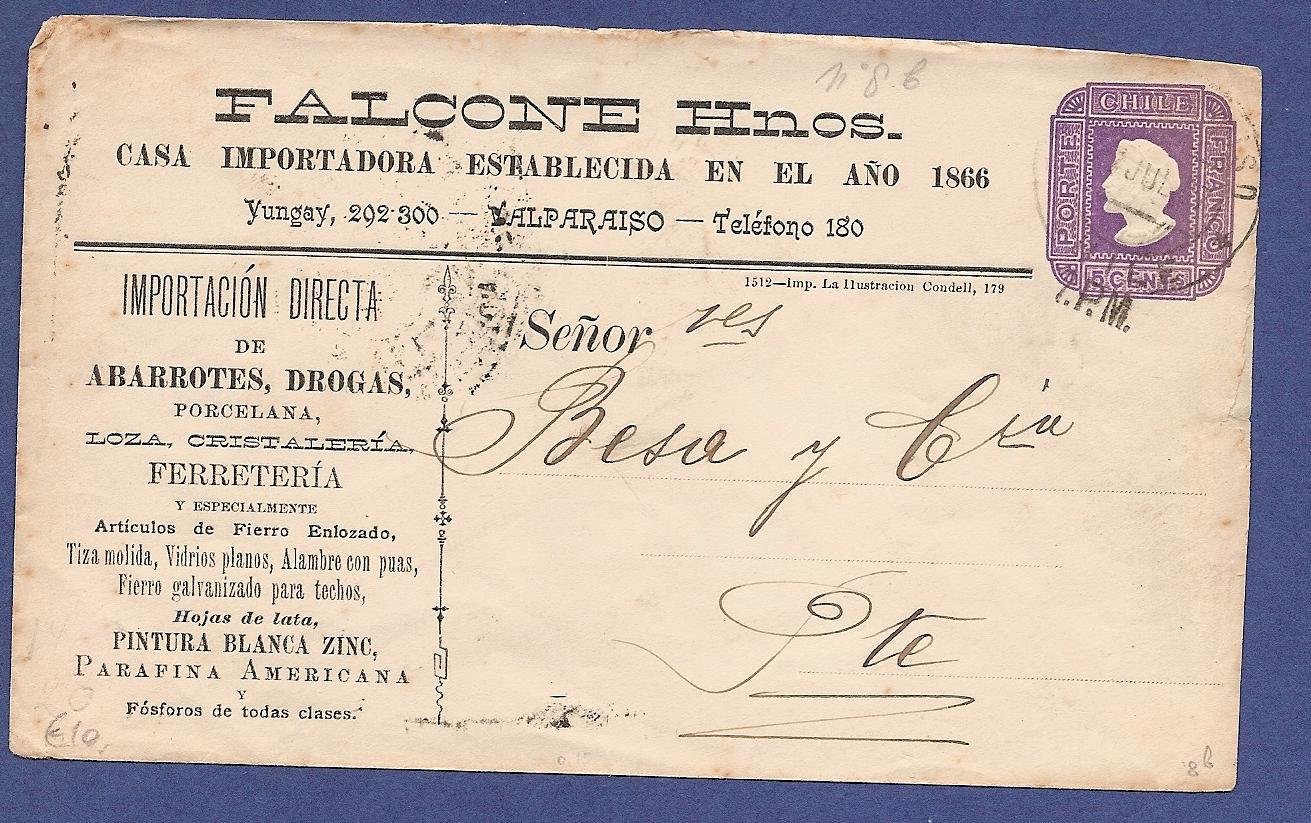 n° 8 b
FALCONE Hnos.
CASA IMPORTADORA ESTABLECIDA EN EL AÑO 1866
Yungay, 292-300 — VALPARAISO — Teléfono 180
CHILE
PORTE
FRANCO
5 CENTS
JUL
1512—Imp. La Ilustracion Condell, 179
IMPORTACIÓN DIRECTA
DE
ABARROTES, DROGAS,
PORCELANA,
LOZA, CRISTALERÍA,
FERRETERÍA
Y ESPECIALMENTE
Artículos de Fierro Enlozado,
Tiza molida, Vidrios planos, Alambre con puas,
Fierro galvanizado para techos,
Hojas de lata,
PINTURA BLANCA ZINC,
PARAFINA AMERICANA
Y
Fósforos de todas clases.
Señor res
Besa y Cia
Pte
€10,
8b